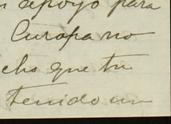 apoyo para
Europa no
cho que tu
tenido un